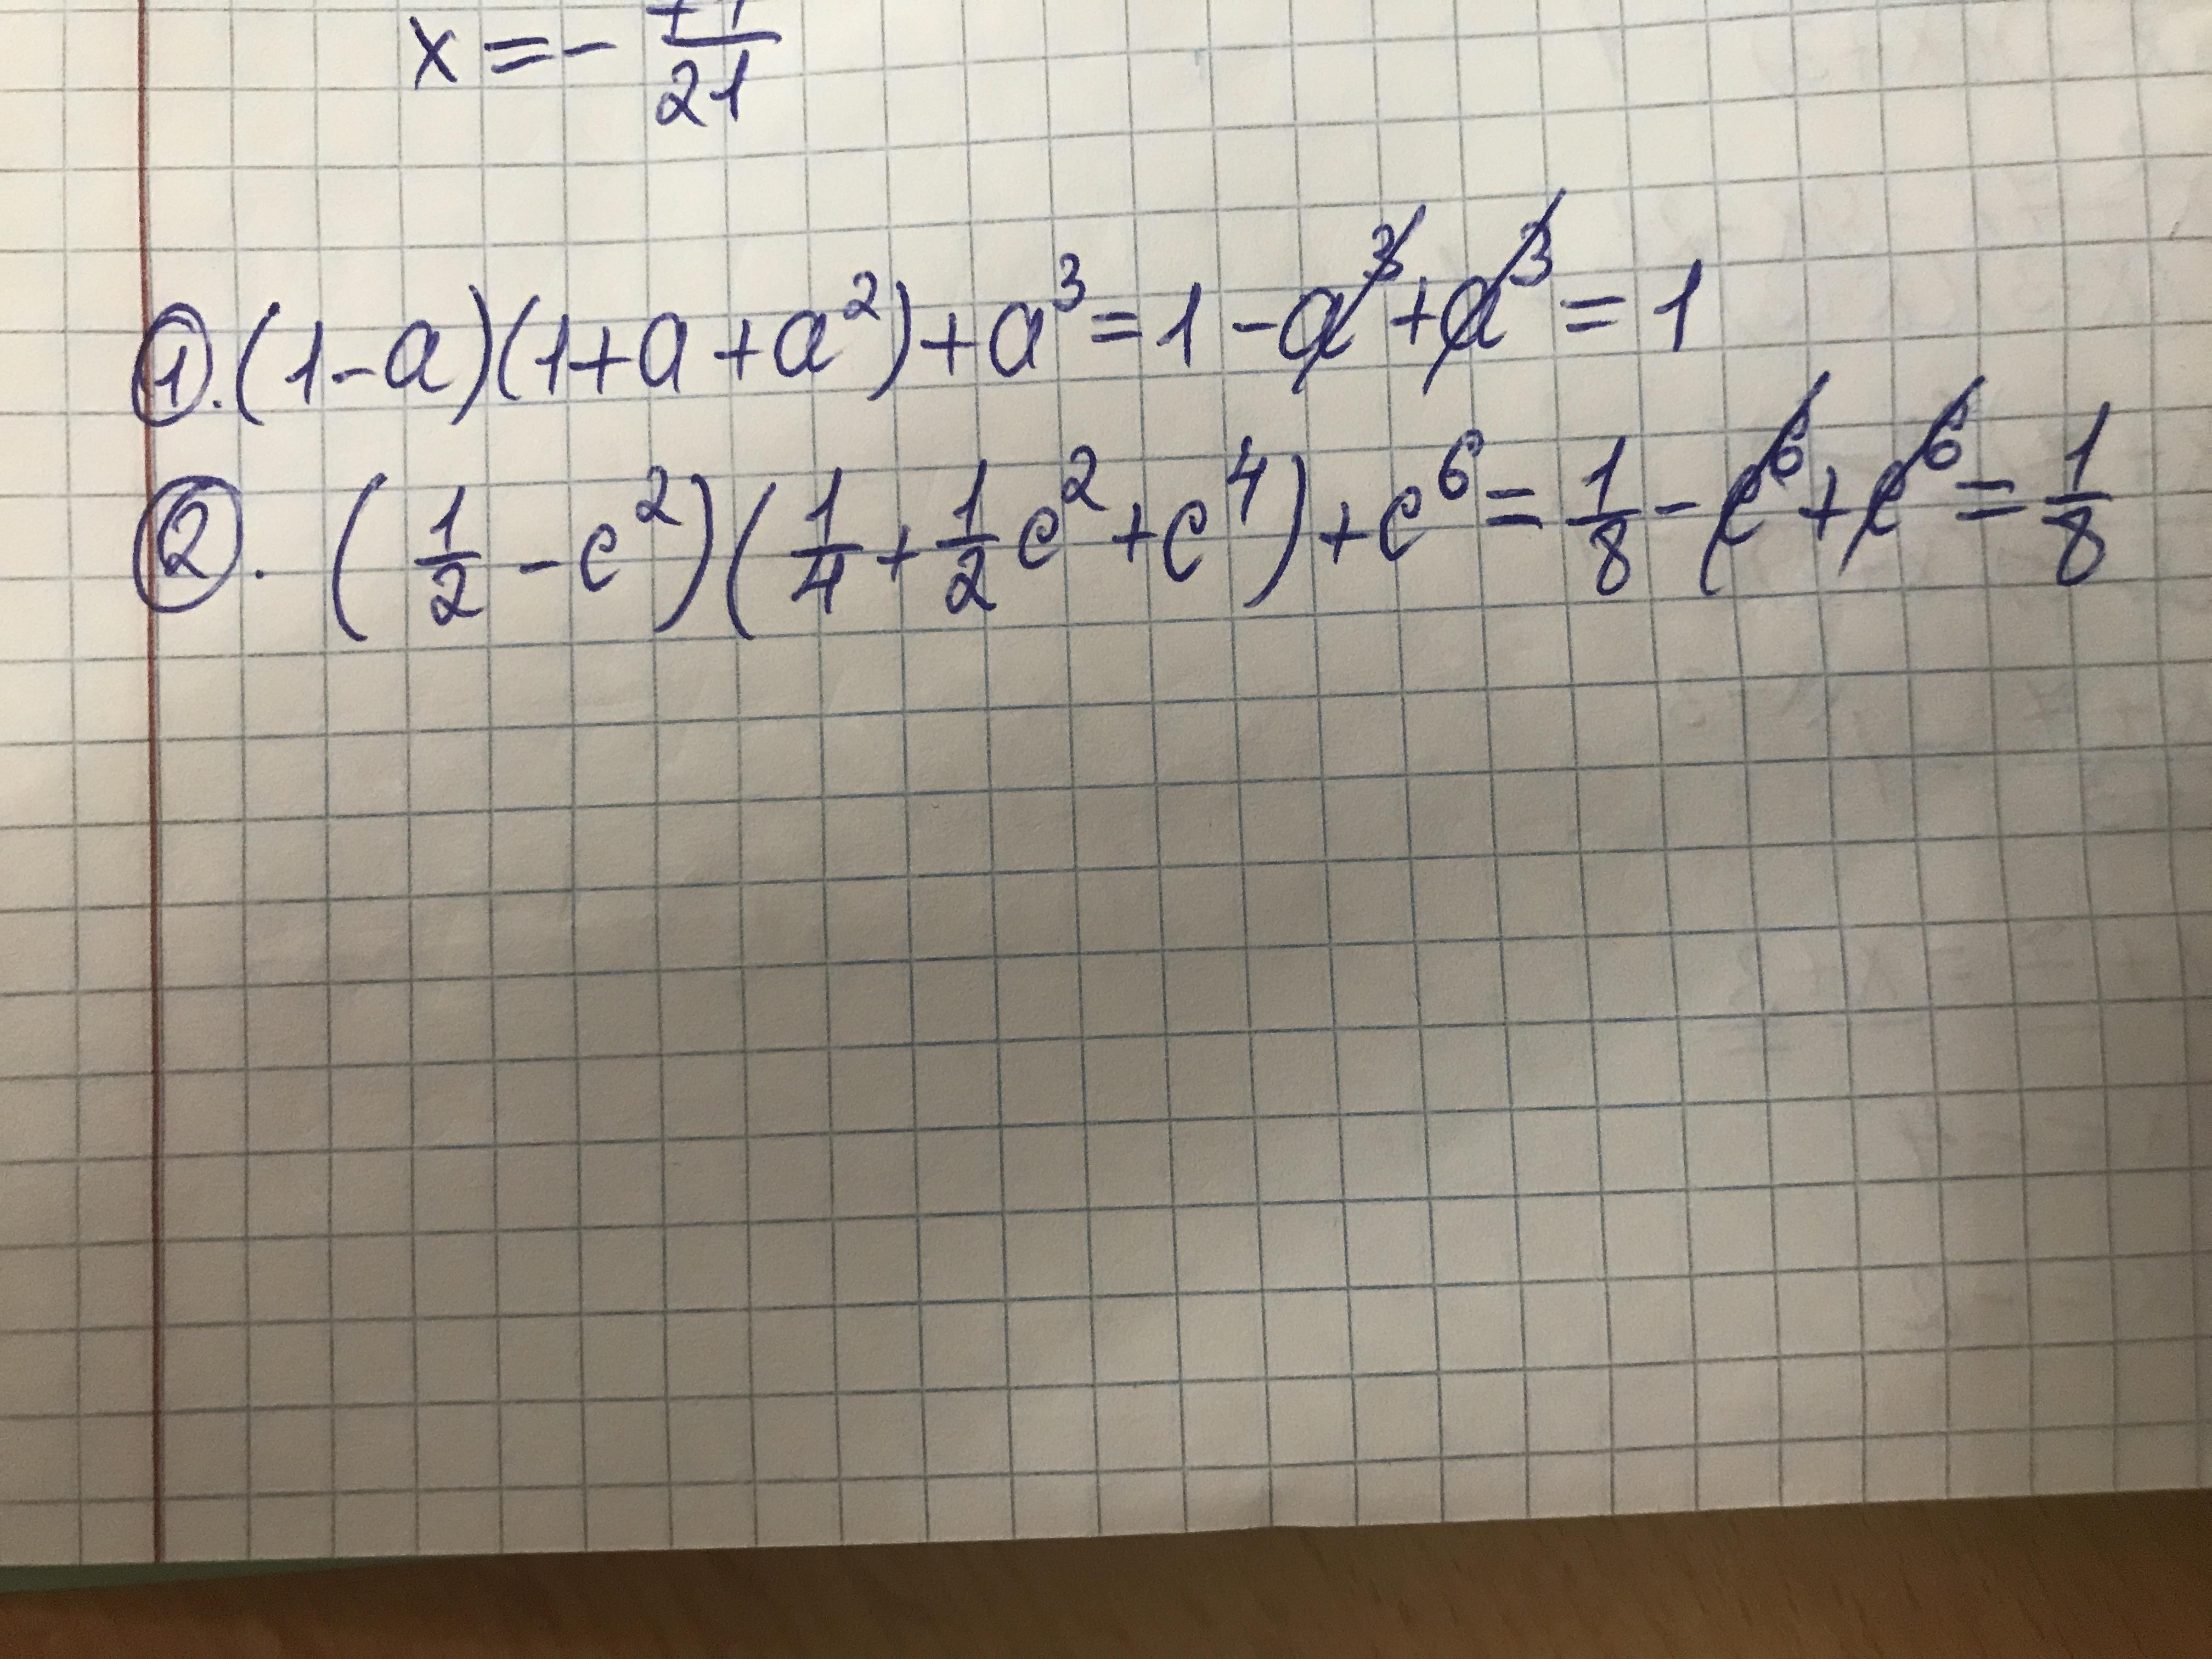 x = - /21
1. (1-a)(1+a+a²)+a³=1-a³+a³=1
2. (1/2-c²)(1/4+1/2c²+c⁴)+c⁶=1/8-c⁶+c⁶=1/8